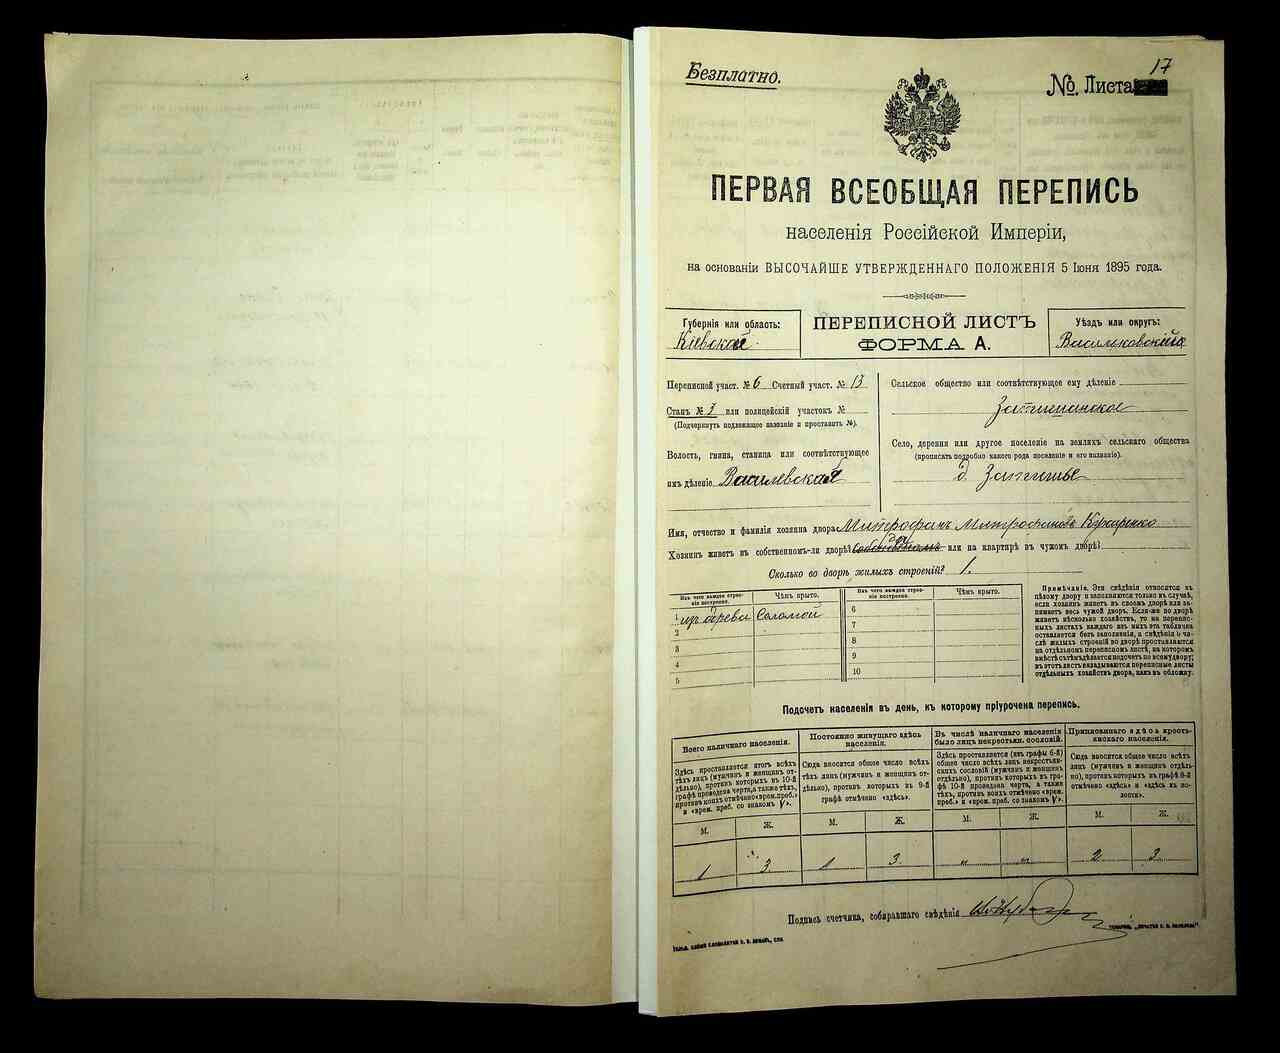 Безплатно.
№ Листа 17
ПЕРВАЯ ВСЕОБЩАЯ ПЕРЕПИСЬ
населенія Россійской Имперіи,
на основаніи ВЫСОЧАЙШЕ УТВЕРЖДЕННАГО ПОЛОЖЕНІЯ 5 Іюня 1895 года.
Губернія или область:
Кіевской
ПЕРЕПИСНОЙ ЛИСТЪ
ФОРМА А.
Уѣздъ или округъ:
Васильковскій
Переписной участ. № 6 Счетный участ. № 13
Станъ № 3 или полицейскій участокъ №
(Подчеркнуть подлежащее названіе и проставить №).
Волость, гмина, станица или соотвѣтствующее
имъ дѣленіе Василевская
Сельское общество или соотвѣтствующее ему дѣленіе
Затишанское
Село, деревня или другое поселеніе на земляхъ сельскаго общества
(прописать подробно какого рода поселеніе и его названіе).
д. Затишье
Имя, отчество и фамилія хозяина двора Митрофанъ Митрофановъ
Хозяинъ живетъ въ собственномъ-ли дворѣ? да или на квартирѣ въ чужомъ дворѣ?
Сколько во дворѣ жилыхъ строеній? 1.
Изъ чего каждое строеніе построено. Чѣмъ крыто. Изъ чего каждое строеніе построено. Чѣмъ крыто.
1 изъ дерева Соломой 6
2 7
3 8
4 9
5 10
Примѣчаніе. Эти свѣдѣнія относятся къ
цѣлому двору и заполняются только въ случаѣ,
если хозяинъ живетъ въ своемъ дворѣ или занимаетъ
весь чужой дворъ. Если-же во дворѣ
живетъ нѣсколько хозяйствъ, то на переписныхъ
листахъ каждаго изъ нихъ эта табличка
оставляется безъ заполненія, а свѣдѣнія о числѣ
жилыхъ строеній во дворѣ проставляются
на отдѣльномъ переписномъ листѣ, на которомъ
вмѣстѣ съ тѣмъ дѣлается подсчетъ по всему двору;
въ этотъ листъ вкладываются переписные листы
отдѣльныхъ хозяйствъ двора, какъ въ обложку.
Подсчетъ населенія въ день, къ которому пріурочена перепись.
Всего наличнаго населенія.
Здѣсь проставляется итогъ всѣхъ
тѣхъ лицъ (мужчинъ и женщинъ отдѣльно),
противъ которыхъ въ 10-й
графѣ проведена черта, а также тѣхъ,
противъ коихъ отмѣчено «врем. преб.»
и «врем. преб. со знакомъ V».
Постоянно живущаго здѣсь
населенія.
Сюда вносится общее число всѣхъ
тѣхъ лицъ (мужчинъ и женщинъ отдѣльно),
противъ которыхъ въ 9-й
графѣ отмѣчено «здѣсь».
Въ числѣ наличнаго населенія
было лицъ некрестьян. сословій.
Здѣсь проставляется (изъ графы 6-й)
общее число всѣхъ лицъ некрестьянскихъ
сословій (мужчинъ и женщинъ
отдѣльно), противъ которыхъ въ графѣ
10-й проведена черта, а также
тѣхъ, противъ коихъ отмѣчено «врем.
преб.» и «врем. преб. со знакомъ V».
Приписаннаго здѣсь крестьянскаго
населенія.
Сюда вносится общее число всѣхъ
тѣхъ лицъ (мужчинъ и женщинъ отдѣльно),
противъ которыхъ въ графѣ 8-й
отмѣчено «здѣсь» и «здѣсь въ волости».
М. Ж. М. Ж. М. Ж. М. Ж.
1 3 1 3 „ „ 2 3
Подпись счетчика, собиравшаго свѣдѣнія